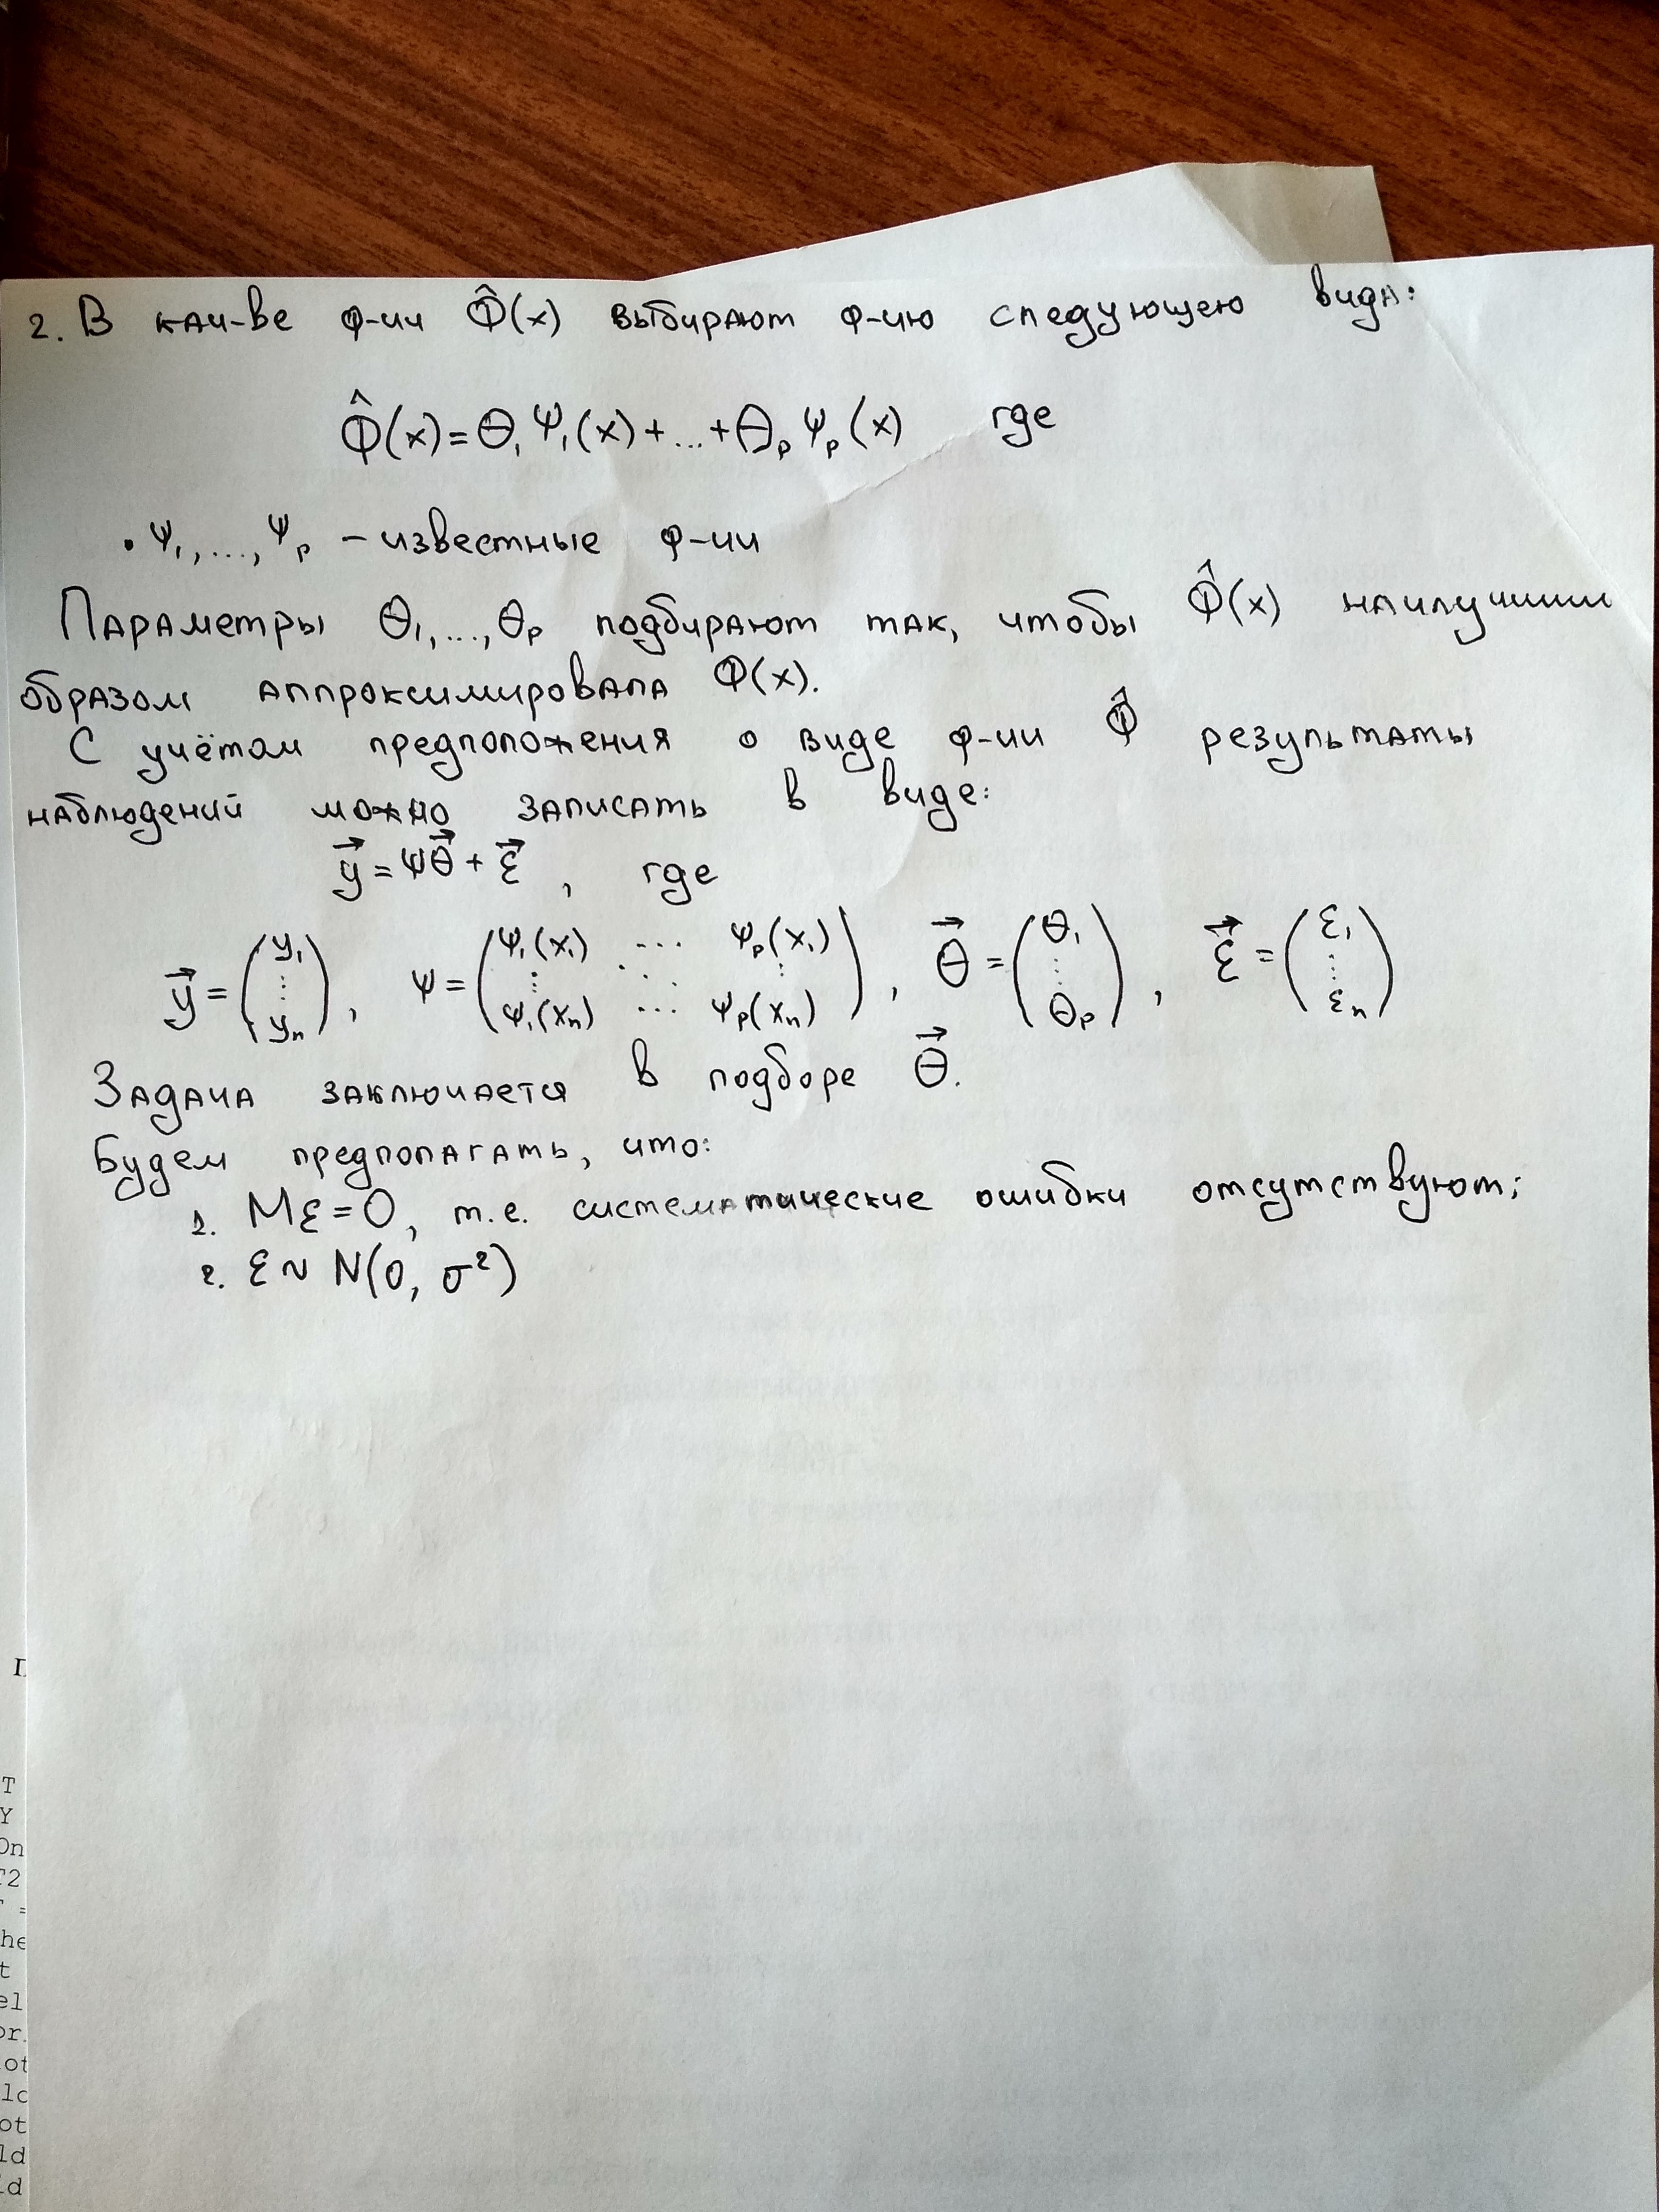 2. В кач-ве ф-ии Φ̂(x) выбирают ф-ию следующего вида:
Φ̂(x) = θ₁ψ₁(x) + ... + θₚψₚ(x) где
• ψ₁, ..., ψₚ – известные ф-ии
Параметры θ₁, ..., θₚ подбирают так, чтобы Φ̂(x) наилучшим
образом аппроксимировала Φ(x).
С учётом предположения о виде ф-ии Φ̂ результаты
наблюдений можно записать в виде:
y⃗ = ψθ⃗ + ε⃗ , где
y⃗ = (y₁ ⋮ yₙ), ψ = (ψ₁(x₁) ... ψₚ(x₁) ⋮ ⋱ ⋮ ψ₁(xₙ) ... ψₚ(xₙ)), θ⃗ = (θ₁ ⋮ θₚ), ε⃗ = (ε₁ ⋮ εₙ)
Задача заключается в подборе θ⃗.
Будем предполагать, что:
1. Mε = 0, т.е. систематические ошибки отсутствуют;
2. ε ~ N(0, σ²)
T
Y
On
T2
=
he
t
el
or.
ot
lc
ot
ld
d